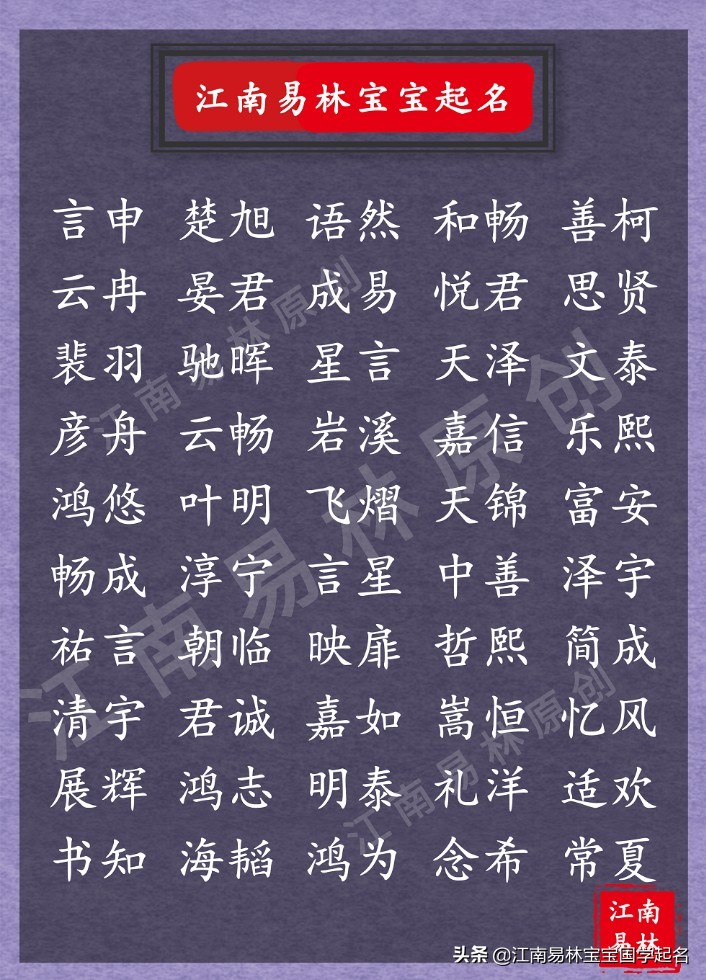 江南易林宝宝起名
言申 楚旭 语然 和畅 善柯
云冉 晏君 成易 悦君 思贤
裴羽 驰晖 星言 天泽 文泰
彦舟 云畅 岩溪 嘉信 乐熙
鸿悠 叶明 飞熠 天锦 富安
畅成 淳宁 言星 中善 泽宇
祐言 朝临 映扉 哲熙 简成
清宇 君诚 嘉如 嵩恒 忆风
展辉 鸿志 明泰 礼洋 适欢
书知 海韬 鸿为 念希 常夏
江南易林原创
江南易林原创
江南易林原创
江南
易林
头条 @江南易林宝宝国学起名